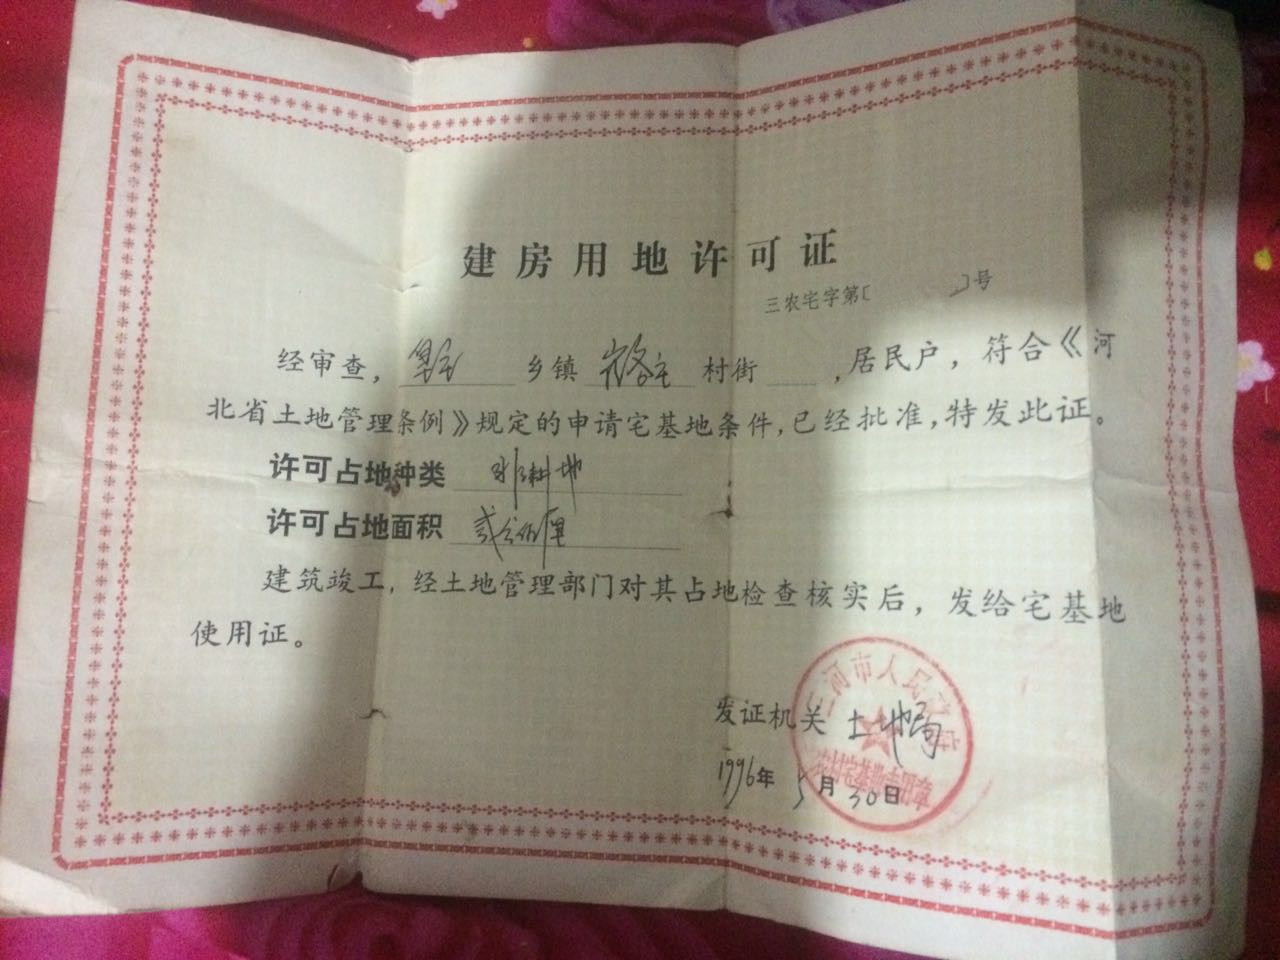 建房用地许可证
三农宅字第〔 〕号
经审查, 乡镇 村街 ,居民户,符合《河
北省土地管理条例》规定的申请宅基地条件,已经批准,特发此证。
许可占地种类 非耕地
许可占地面积
建筑竣工,经土地管理部门对其占地检查核实后,发给宅基地
使用证。
三河市人民政府
发证机关 土地局
宅基地专用章
1996年5月30日